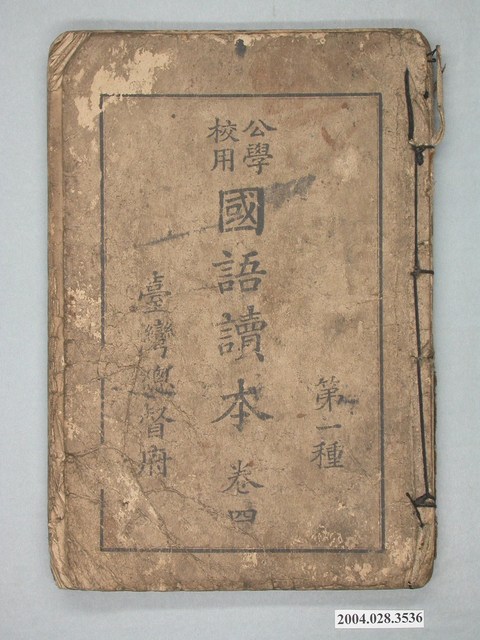 公學
校用
國語讀本 卷四
第一種
臺灣總督府
2004.028.3536